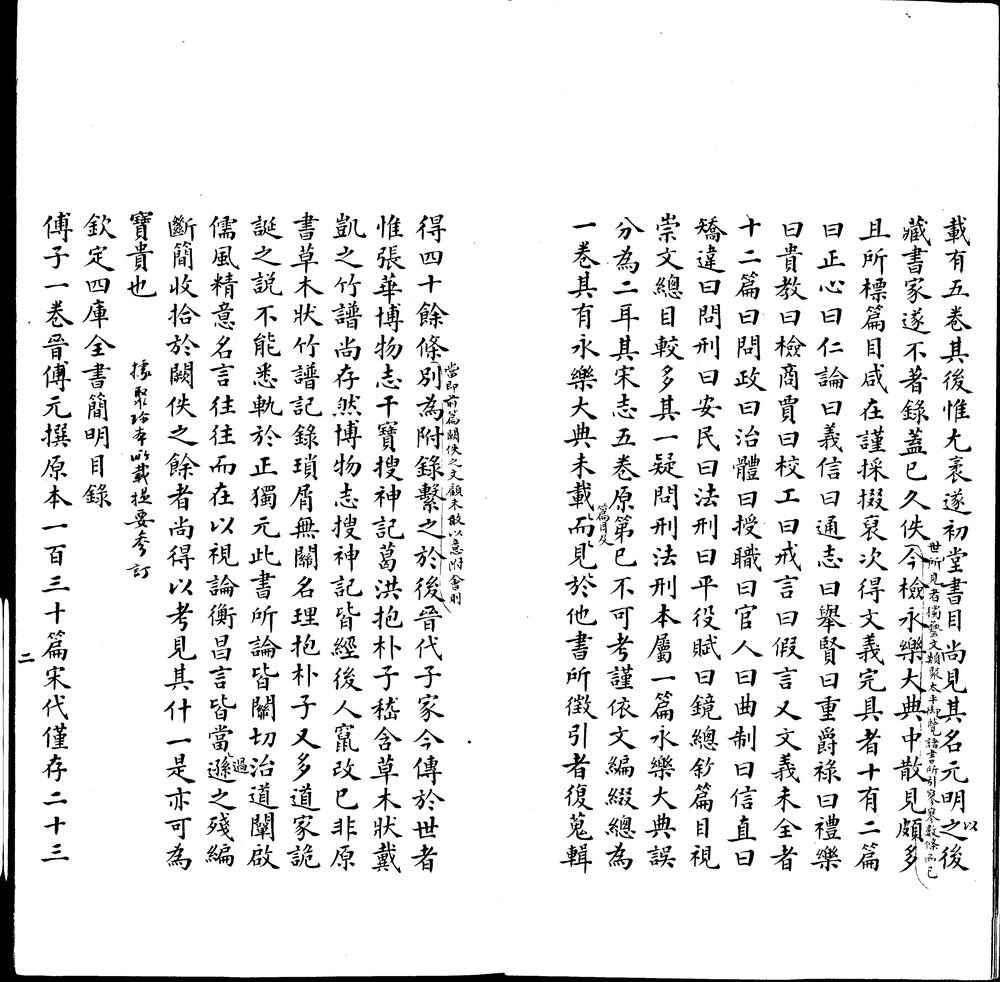 載有五卷其後惟尤袤遂初堂書目尚見其名元明之後
以
藏書家遂不著錄蓋已久佚今檢永樂大典中散見頗多
世所見者獨藝文類聚太平御覽諸書所引寥寥數條而已
且所標篇目咸在謹採掇裒次得文義完具者十有二篇
曰正心曰仁論曰義信曰通志曰舉賢曰重爵祿曰禮樂
曰貴教曰檢商賈曰校工曰戒言曰假言又文義未全者
十二篇曰問政曰治體曰授職曰官人曰曲制曰信直曰
矯違曰問刑曰安民曰法刑曰平役賦曰鏡總鈔篇目視
崇文總目較多其一疑問刑法刑本屬一篇永樂大典誤
分為二耳其宋志五卷原第已不可考謹依文編綴總為
一卷其有永樂大典未載而見於他書所徵引者復蒐輯
篇目及
得四十餘條別為附錄繫之於後晉代子家今傳於世者
當即前篇闕佚之文顧未敢以意附會則
惟張華博物志干寶搜神記葛洪抱朴子嵇含草木狀戴
凱之竹譜尚存然博物志搜神記皆經後人竄改已非原
書草木狀竹譜記錄瑣屑無關名理抱朴子又多道家詭
誕之說不能悉軌於正獨元此書所論皆關切治道闡啟
儒風精意名言往往而在以視論衡昌言皆當遜之殘編
過
斷簡收拾於闕佚之餘者尚得以考見其什一是亦可為
寶貴也
據聚珍本所載提要參訂
欽定四庫全書簡明目錄
傅子一卷晉傅元撰原本一百三十篇宋代僅存二十三
二